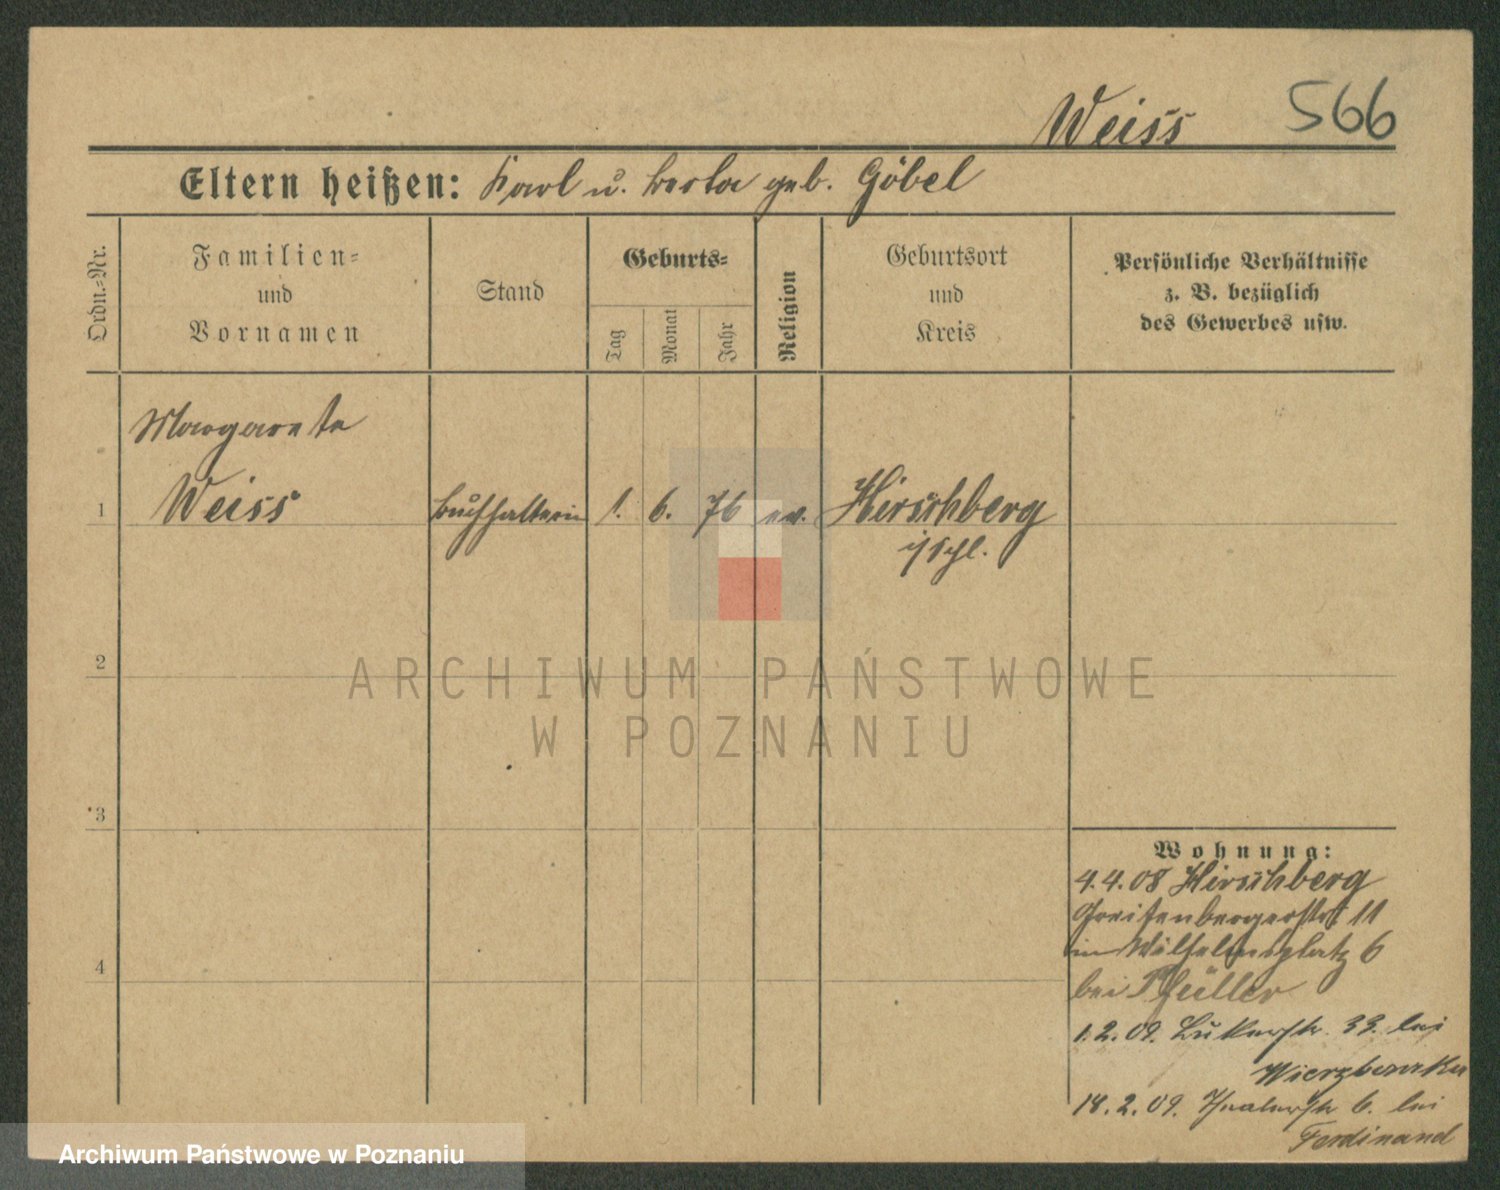 Weiss 566
Eltern heißen: Karl u. Berta geb. Göbel
Ordn.-Nr.
Familien-
und
Vornamen
Stand
Geburts-
Tag
Monat
Jahr
Religion
Geburtsort
und
Kreis
Persönliche Verhältnisse
z. B. bezüglich
des Gewerbes usw.
Margarete
1 Weiss Buchhalterin 1. 6. 76 ev. Hirschberg
i/Schl.
2
ARCHIWUM PAŃSTWOWE
W POZNANIU
3
Wohnung:
4.4.08 Hirschberg
Greifenbergerstr 11
Wilhelmsplatz 6
bei Pfüller
1.2.09. 33. bei
4
18.2.09. Theaterstr 6. bei
Ferdinand
Archiwum Państwowe w Poznaniu